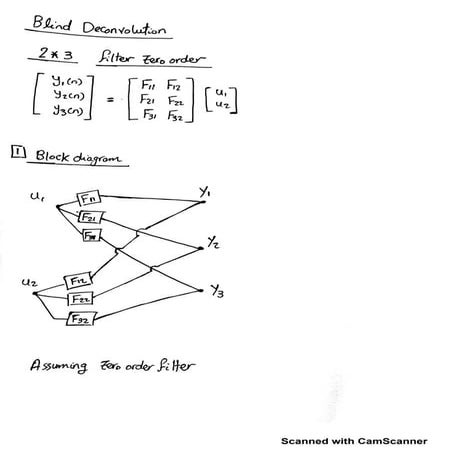 Blind Deconvolution
2*3 filter Zero order
[y₁(n) y₂(n) y₃(n)] = [F₁₁ F₁₂ F₂₁ F₂₂ F₃₁ F₃₂] [u₁ u₂]
1 Block diagram
u₁ F₁₁ y₁
F₂₁
y₂
u₂ F₁₂
F₂₂ y₃
F₃₂
Assuming Zero order filter
Scanned with CamScanner